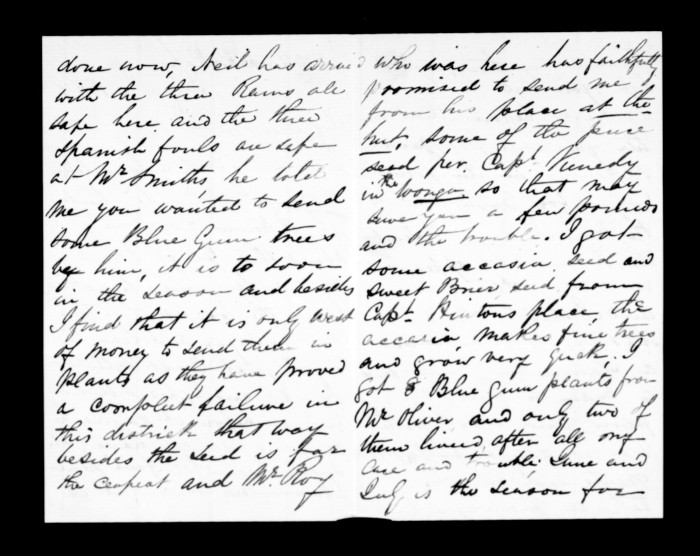 done now, Neil has arrived
with the three Rams all
safe here and the three
Spanish fouls are safe
at Mr Smiths he told
me you wanted to send
some Blue Gum trees
by him, it is to soon
in the season and besides
I find that it is only west
of money to send them in
plants as they have proved
a compleet failure in
this districk that way
besides the seed is far
the cepest and Mr Roy
who was here has faithfully
promised to send me
from his place at the
hut, some of the pure
seed per. Capt. Kenedy
in the Wonga so that may
save you a few pounds
and the trouble. I got
some accasia seed and
sweet Brier seed from
Capt. Hintons place, the
accasia, makes fine trees
and grow very quck, I
got 8 Blue gum plants from
Mr Oliver and only two of
them lived after all my
care and trouble; June and
July is the season for